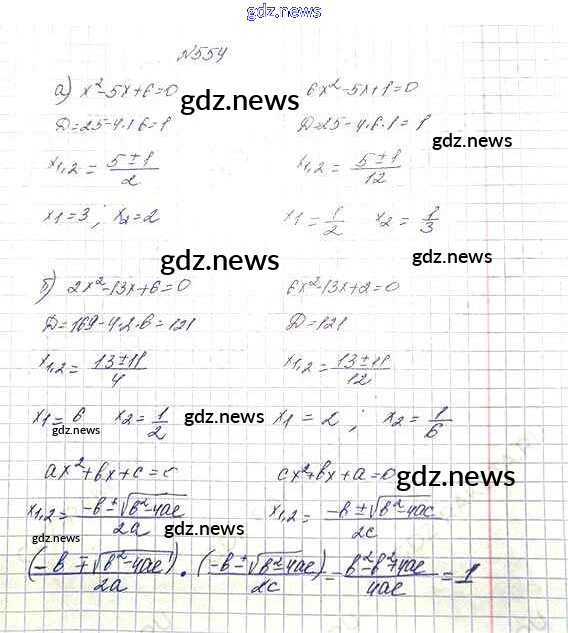 gdz.news
№554
а) x²-5x+6=0 6x²-5x+1=0
gdz.news
Д=25-4·1·6=1 Д=25-4·6·1=1
gdz.news
x₁,₂ = (5±1)/2 x₁,₂ = (5±1)/12
x₁=3; x₂=2 x₁=1/2 x₂=1/3
gdz.news gdz.news
б) 2x²-13x+6=0 6x²-13x+2=0
Д=169-4·2·6=121 Д=121
x₁,₂ = (13±11)/4 x₁,₂ = (13±11)/12
x₁=6 x₂=1/2 gdz.news x₁=2; x₂=1/6
gdz.news
ax²+bx+c=c cx²+bx+a=0
gdz.news
x₁,₂ = (-b±√(b²-4ac))/2a x₁,₂ = (-b±√(b²-4ac))/2c
gdz.news gdz.news
(-b∓√(b²-4ac))/2a · (-b±√(b²-4ac))/2c = (b²-b²+4ac)/4ac = 1
gdz.news